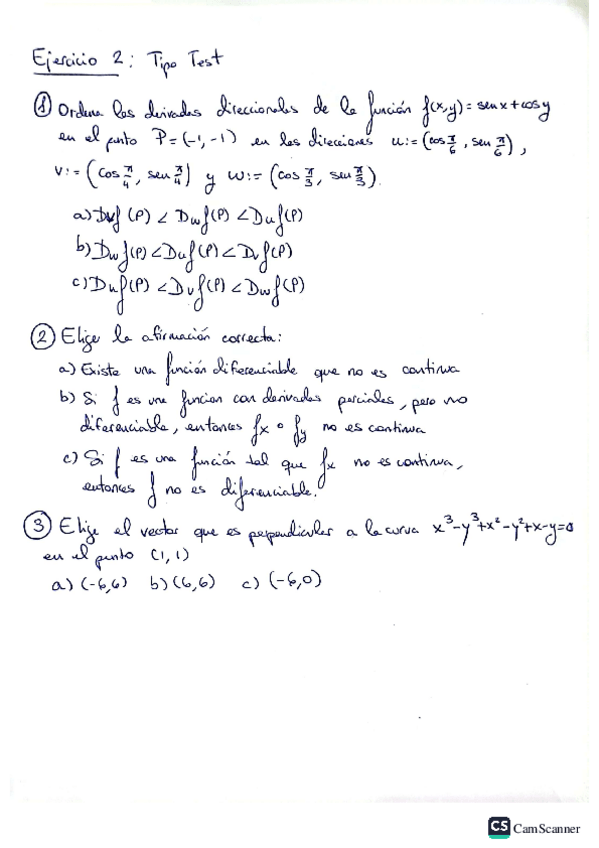 Ejercicio 2: Tipo Test
① Ordena las derivadas direccionales de la función f(x,y) = sen x + cos y
en el punto P = (-1, -1) en las direcciones u := (cos π/6, sen π/6),
v := (cos π/4, sen π/4) y w := (cos π/3, sen π/3).
a) Dvf(P) < Dwf(P) < Duf(P)
b) Dwf(P) < Duf(P) < Dvf(P)
c) Duf(P) < Dvf(P) < Dwf(P)
② Elige la afirmación correcta:
a) Existe una función diferenciable que no es continua
b) Si f es una funcion con derivadas parciales, pero no
diferenciable, entonces fx o fy no es continua
c) Si f es una función tal que fx no es continua,
entonces f no es diferenciable.
③ Elige el vector que es perpendicular a la curva x³-y³+x²-y²+x-y=0
en el punto (1, 1)
a) (-6,6) b) (6,6) c) (-6,0)
CS CamScanner